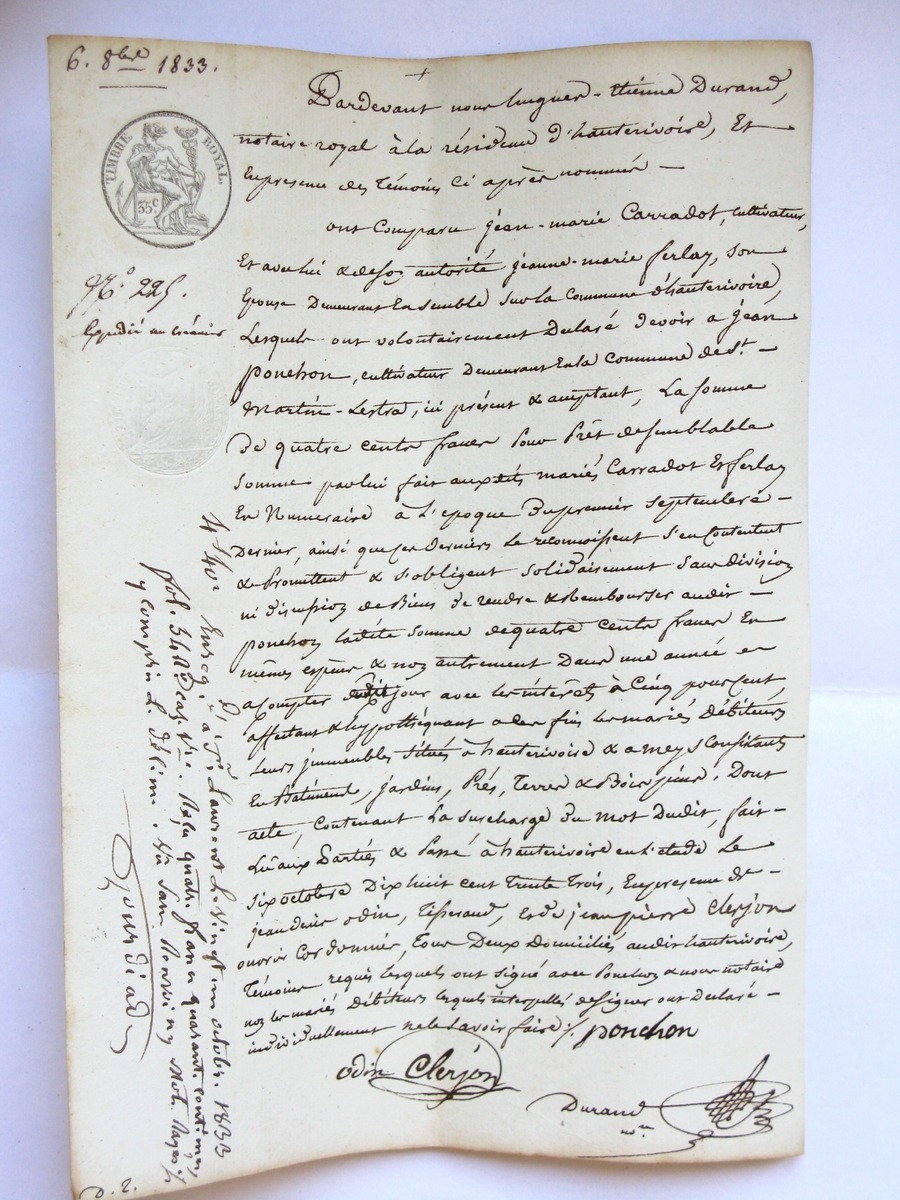 6. 8bre 1833.
TIMBRE ROYAL
35 c.
N.o 225.
Expédié au créancier
Pardevant nous hugues-étienne Durand,
notaire royal à la résidence d'hauterivoire, Et
En présence des témoins ci après nommés —
ont Comparu jean-marie Carradot, cultivateur,
Et avec lui & de son autorité jeanne-marie ferlay, son
Epouse Demeurant Ensemble sur la Commune d'hauterivoire,
Lesquels ont volontairement Déclaré devoir a jean
ponchon, cultivateur Demeurant En la Commune de St. —
Martin-Lestra, ici présent & acceptant, La somme
De quatre cents francs Pour Prêt de semblable
somme par lui fait auxdits mariés Carradot Et ferlay
En Numeraire à L'époque Du premier septembre —
Dernier, ainsi que ces Derniers Le reconnoissent s'en Contentent
& Promettent & s'obligent solidairement sans division
ni discussion de Biens De rendre & Rembourser audit —
ponchon ladite somme de quatre cents francs En
mêmes espèces & non autrement Dans une année en
a Compter dudit jour avec les intérêts à Cinq pour Cent,
affectant & hypothéquant a ces fins les mariés Débiteurs
Leurs immeubles situés à hauterivoire & a meys Consistants
En Bâtiment, jardins, Prés, Terres & Bois pins. Dont
acte, Contenant La surcharge du mot Dudit, fait —
Lu aux Parties & Passé à hauterivoire en l'étude Le
six octobre Dix huit cent trente trois, En présence de —
jean denis odin, Tisserand, Et de jean pierre Clerjon
ouvrier Cordonnier, tous Deux Domiciliés audit hauterivoire,
Témoins requis lesquels ont signé avec Ponchon & nous notaire
non les mariés Débiteurs lesquels interpellés de signer ont Déclaré —
individuellement ne le savoir faire ./.
ponchon
odin Clerjon
Durand
nre
4f 40c
Enreg. à St. Laurent Le Vingt un octobre 1833
fol. 34 Ro case Vre. Reçu quatre francs quarante centimes,
y compris L. Décime.
Jourdiad